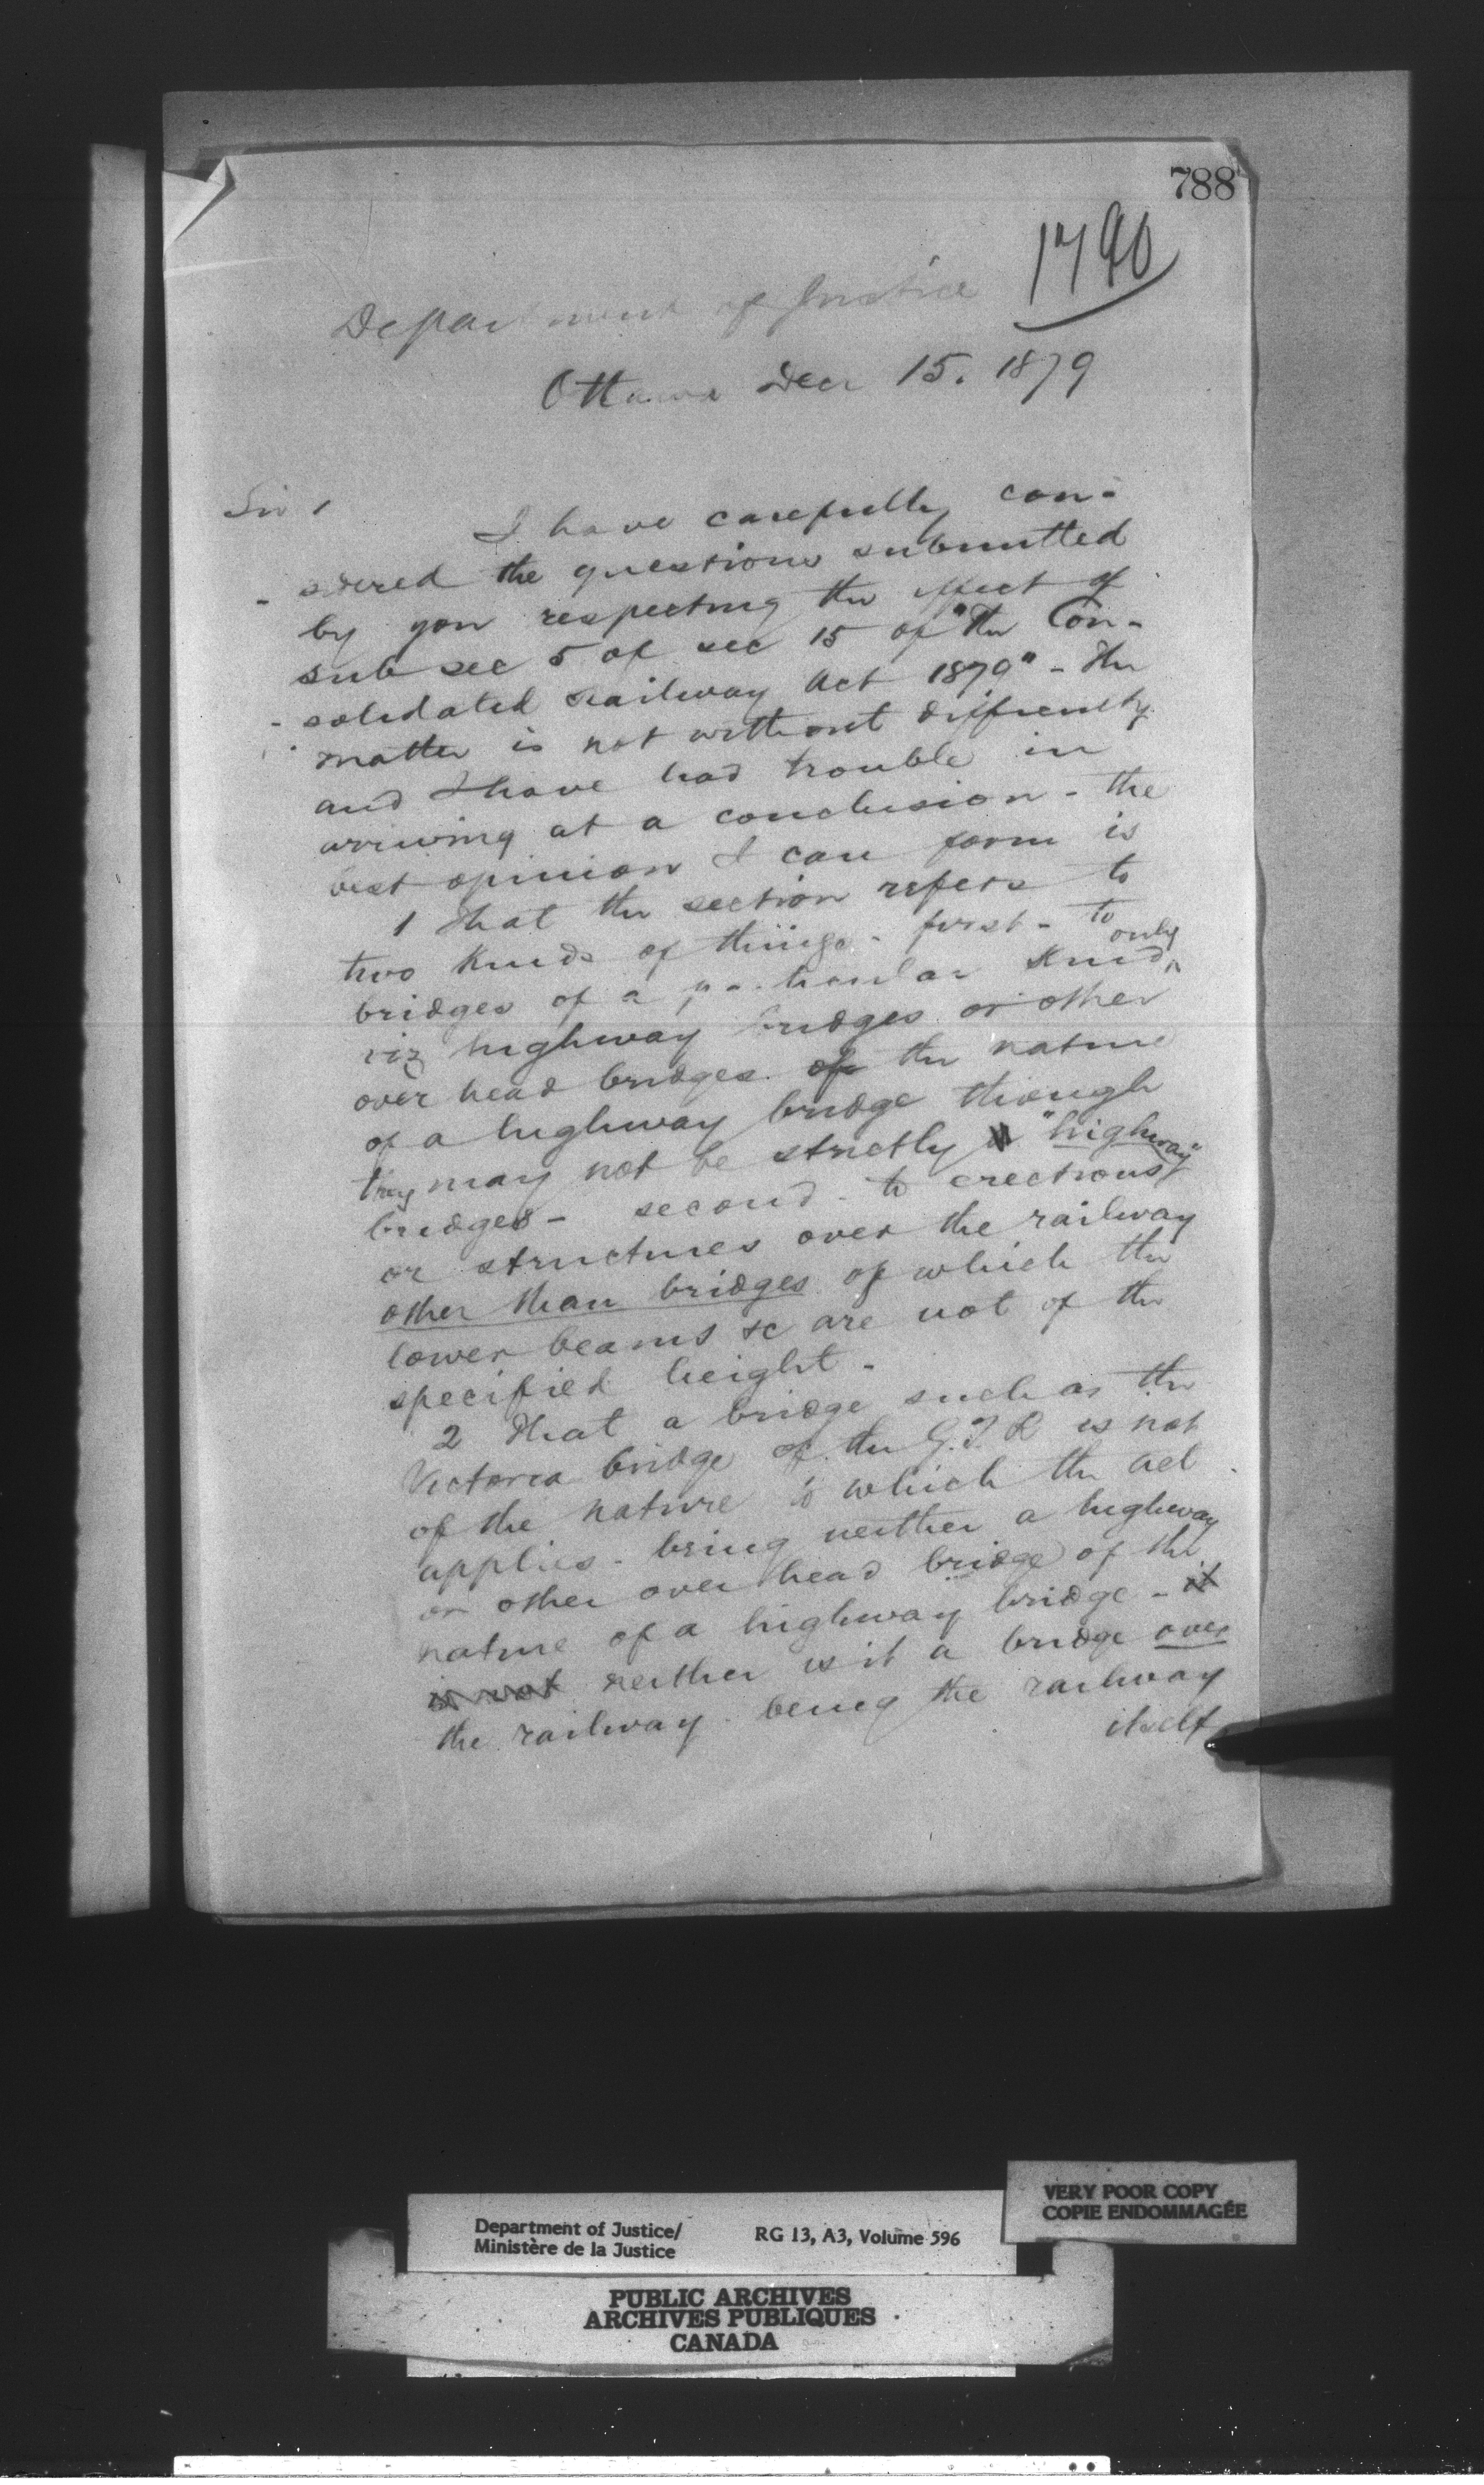 788
1790
Department of Justice
Ottawa Decr 15. 1879
Sir,
I have carefully con-
-sidered the questions submitted
by you respecting the effect of
sub sec 5 of sec 15 of "The Con-
-solidated Railway Act 1879" - The
matter is not without difficulty
and I have had trouble in
arriving at a conclusion - the
best opinion I can form is
1 That the section refers to
two kinds of things - first - to
bridges of a particular kind only
viz highway bridges or other
over head bridges of the nature
of a highway bridge though
they may not be strictly "highway"
bridges - second - to erections
or structures over the railway
other than bridges of which the
lower beams &c are not of the
specified height -
2 That a bridge such as the
Victoria bridge of the G.T.R is not
of the nature to which the act
applies - being neither a highway
or other over head bridge of the
nature of a highway bridge - it
is not neither is it a bridge over
the railway - being the railway
itself
Department of Justice/
Ministère de la Justice
RG 13, A3, Volume 596
VERY POOR COPY
COPIE ENDOMMAGÉE
PUBLIC ARCHIVES
ARCHIVES PUBLIQUES
CANADA